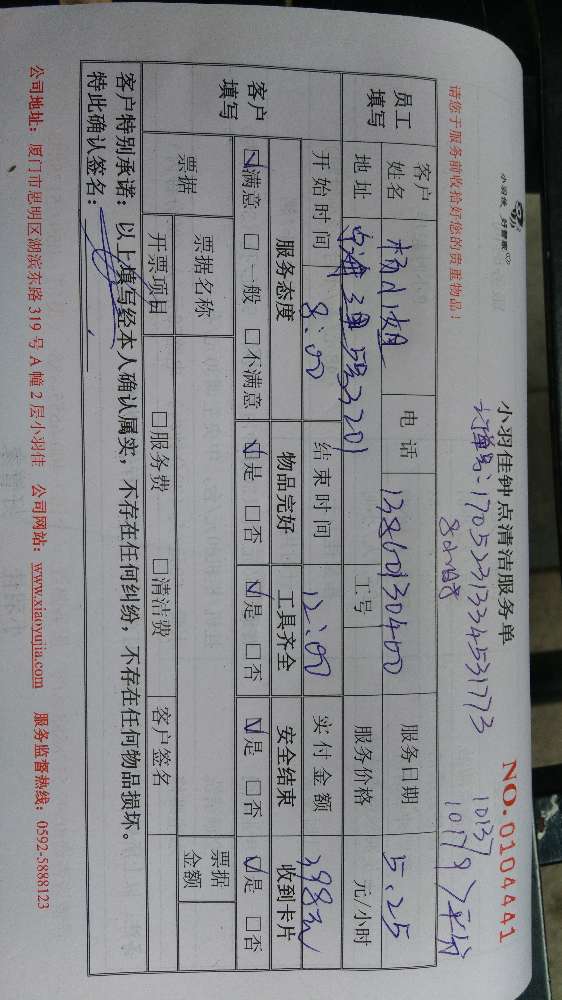 小羽佳 好管家
小羽佳钟点清洁服务单
NO.0104441
订单号:1705231334531773
8小时
10137
10179 平分
请您于服务前收拾好您的贵重物品!
员工填写 客户姓名 杨小姐 电话 13860130400 服务日期 5.25
地址 201 工号 服务价格 元/小时
开始时间 8:00 结束时间 12:00 实付金额 398元
客户填写 服务态度 物品完好 工具齐全 安全结束 收到卡片
☑满意 □一般 □不满意 ☑是 □否 ☑是 □否 ☑是 □否 ☑是 □否
票据 票据名称 票据金额
开票项目 □服务费 □清洁费 客户签名
客户特别承诺:以上填写经本人确认属实,不存在任何纠纷,不存在任何物品损坏。
特此确认签名:
公司地址:厦门市思明区湖滨东路 319 号 A 幢 2 层小羽佳 公司网站:www.xiaoyujia.com 服务监督热线:0592-5888123